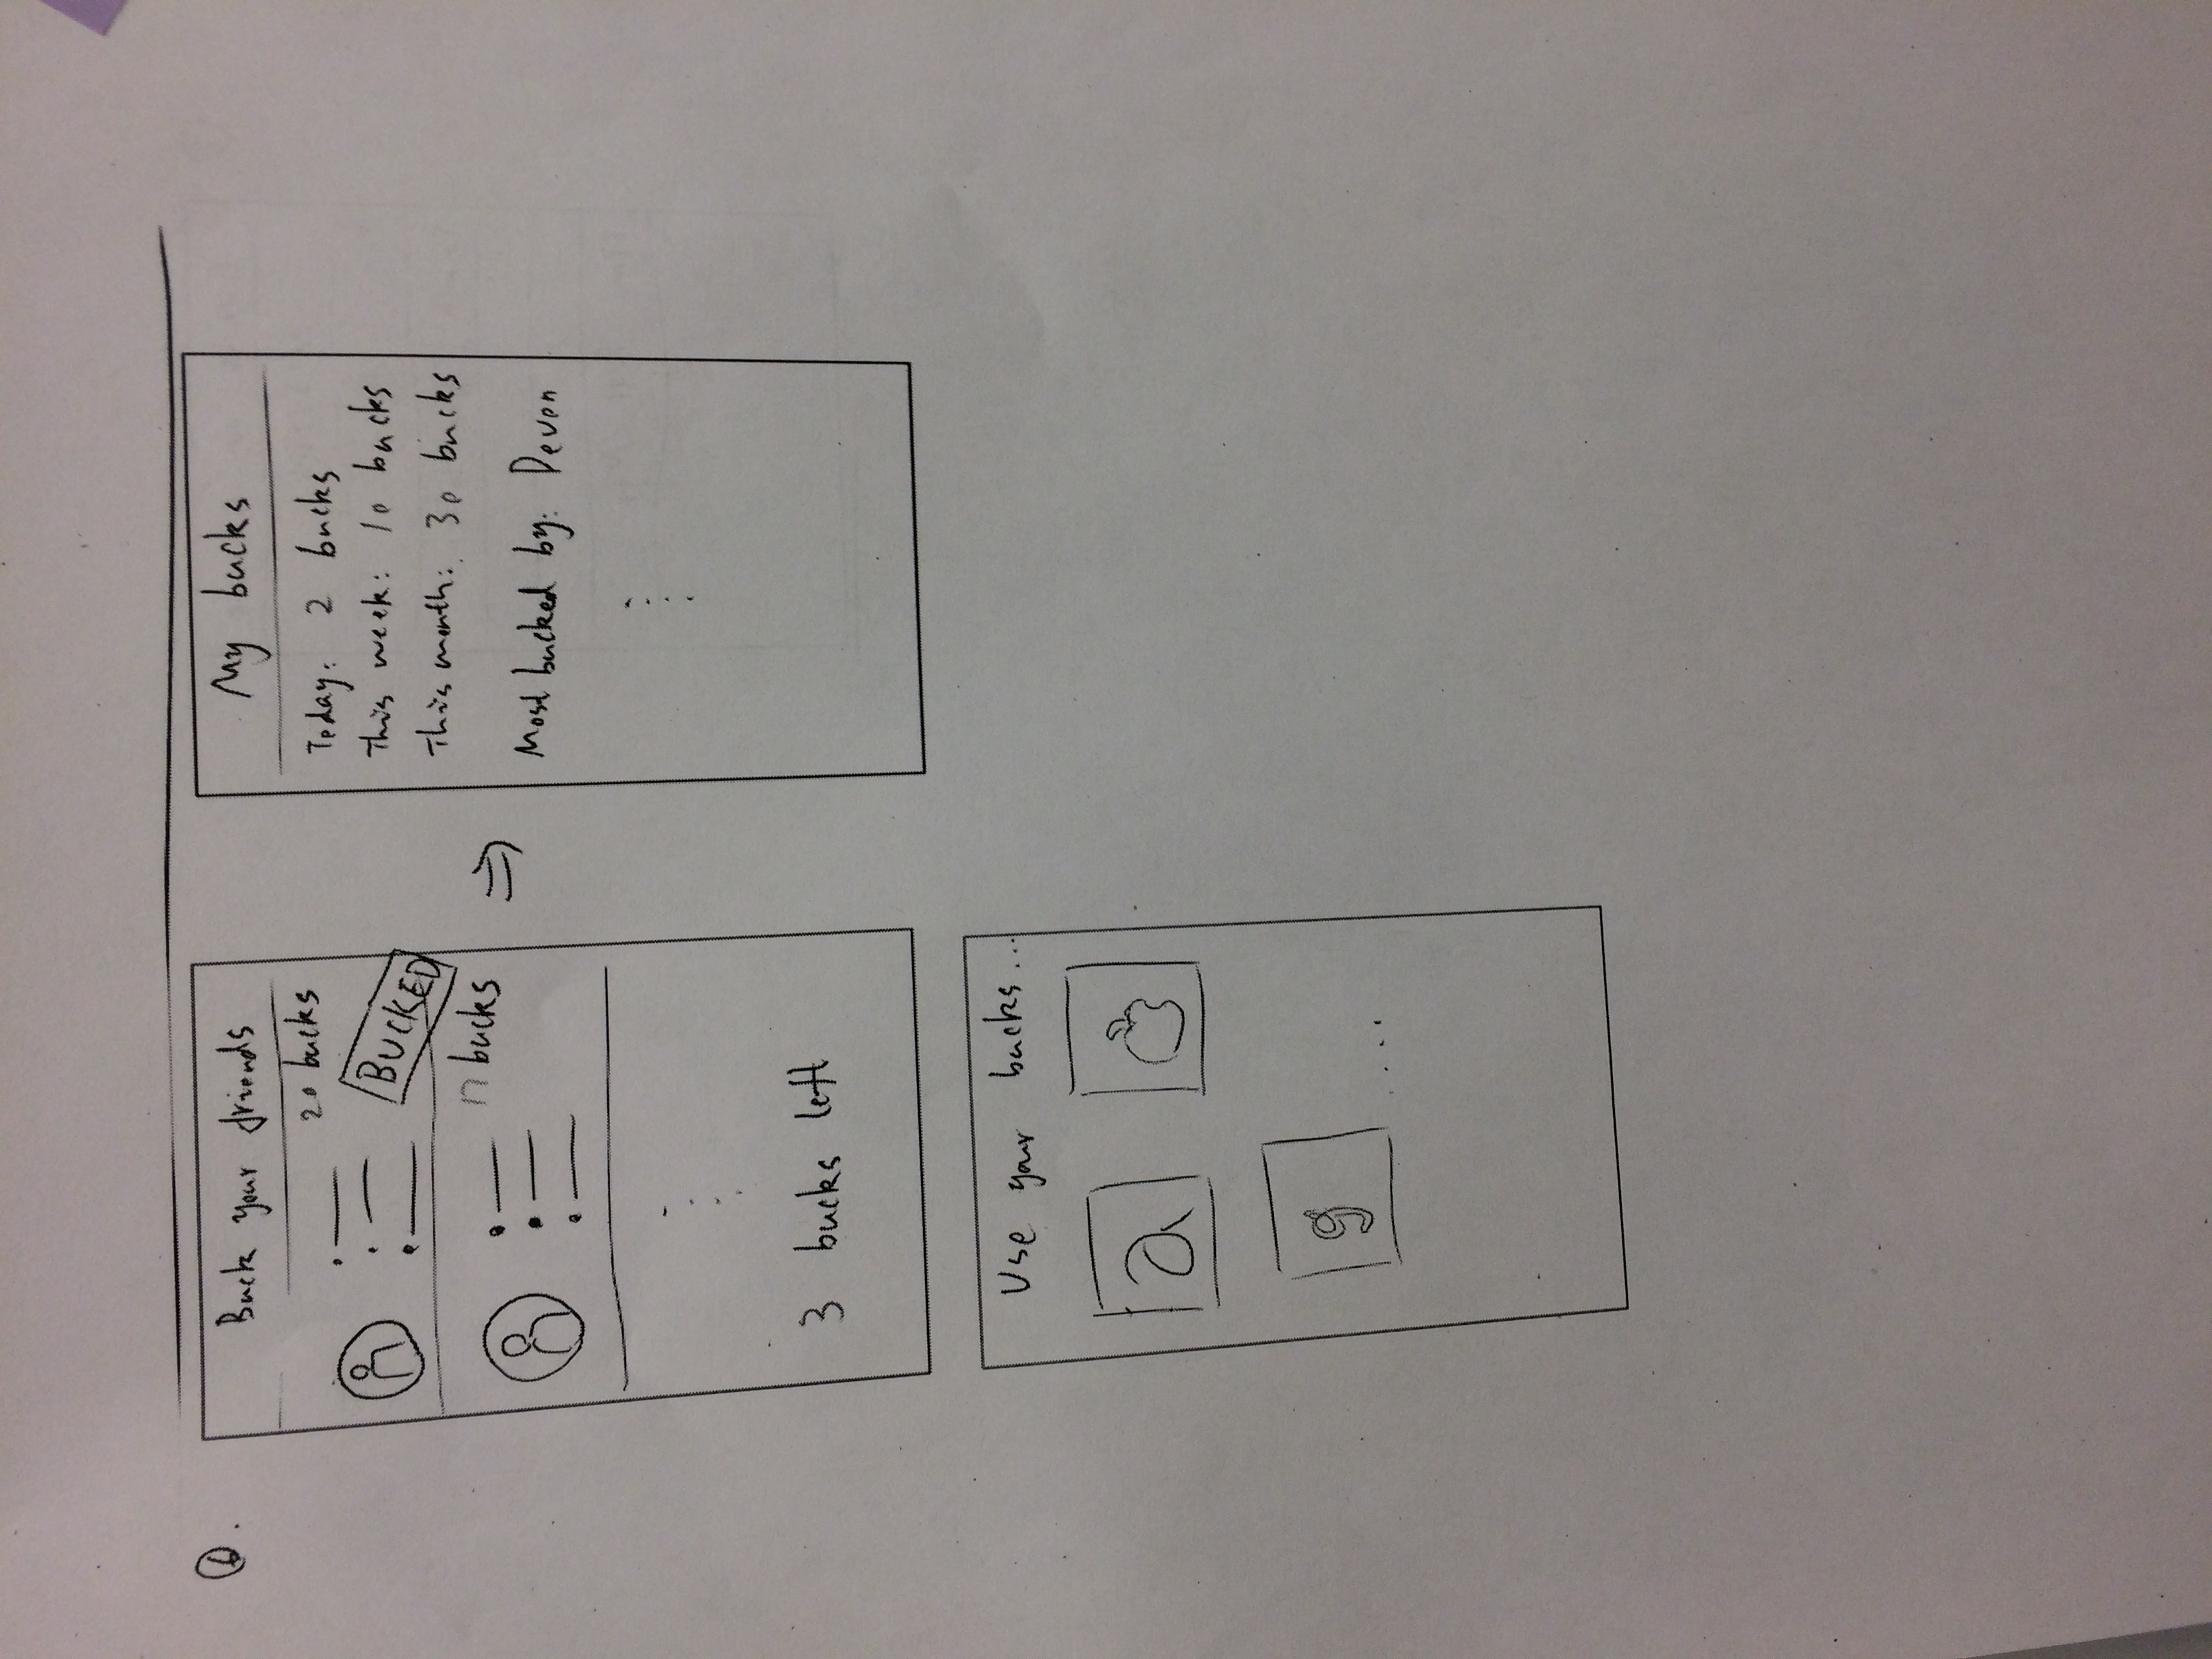 6.
Buck your friends
20 bucks
BUCKED
17 bucks
3 bucks left
My bucks
Today: 2 bucks
This week: 10 bucks
This month: 30 bucks
Most bucked by: Devon
Use your bucks...
a
g
....